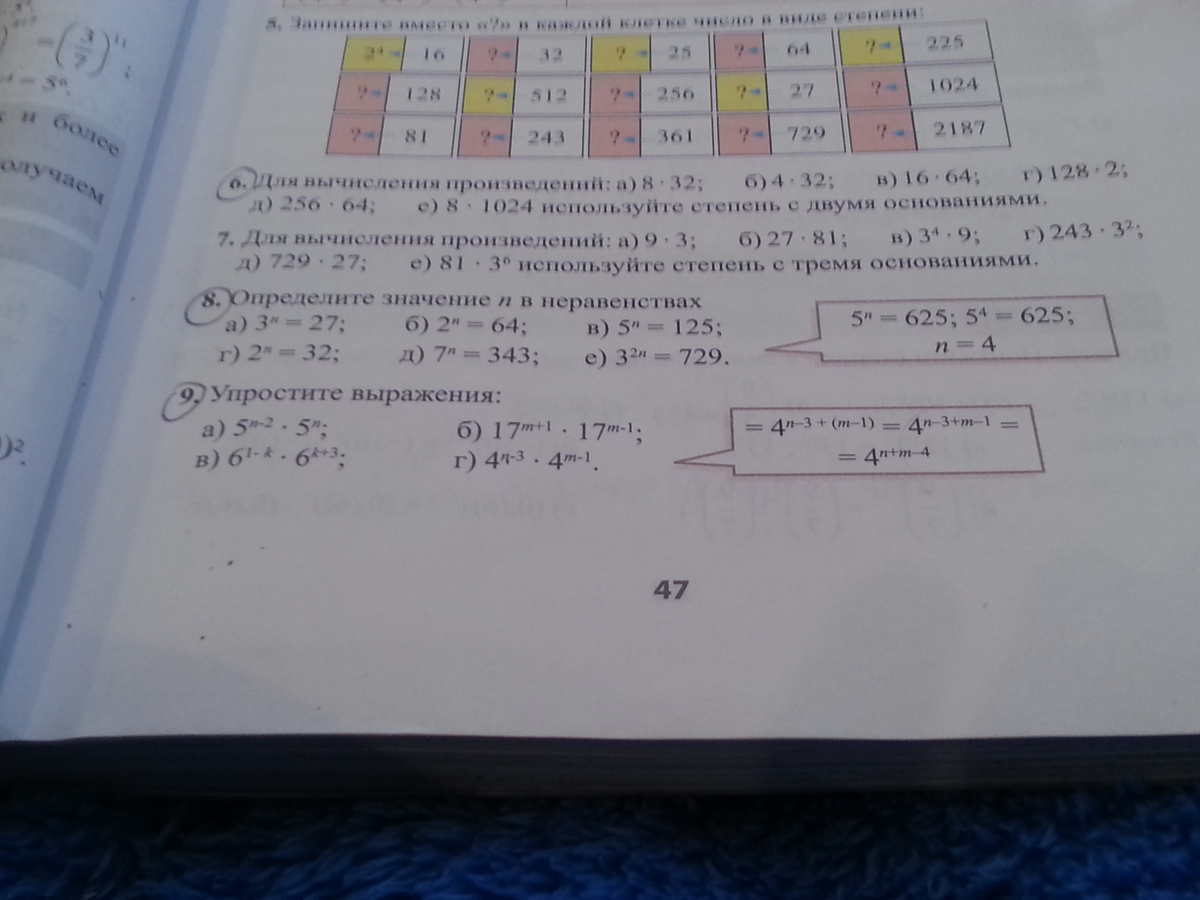 = (3/7)¹¹;
= 5ⁿ.
и более
олучаем
)².
5. Запишите вместо «?» в каждой клетке число в виде степени:
2⁴ 16 ? 32 ? 25 ? 64 ? 225
? 128 ? 512 ? 256 ? 27 ? 1024
? 81 ? 243 ? 361 ? 729 ? 2187
6. Для вычисления произведений: а) 8 · 32; б) 4 · 32; в) 16 · 64; г) 128 · 2;
д) 256 · 64; е) 8 · 1024 используйте степень с двумя основаниями.
7. Для вычисления произведений: а) 9 · 3; б) 27 · 81; в) 3⁴ · 9; г) 243 · 3²;
д) 729 · 27; е) 81 · 3⁶ используйте степень с тремя основаниями.
8. Определите значение n в неравенствах
а) 3ⁿ = 27; б) 2ⁿ = 64; в) 5ⁿ = 125;
г) 2ⁿ = 32; д) 7ⁿ = 343; е) 3²ⁿ = 729.
5ⁿ = 625; 5⁴ = 625;
n = 4
9. Упростите выражения:
а) 5ⁿ⁻² · 5ⁿ; б) 17ᵐ⁺¹ · 17ᵐ⁻¹;
в) 6¹⁻ᵏ · 6ᵏ⁺³; г) 4ⁿ⁻³ · 4ᵐ⁻¹.
= 4ⁿ⁻³ ⁺ ⁽ᵐ⁻¹⁾ = 4ⁿ⁻³⁺ᵐ⁻¹ =
= 4ⁿ⁺ᵐ⁻⁴
47